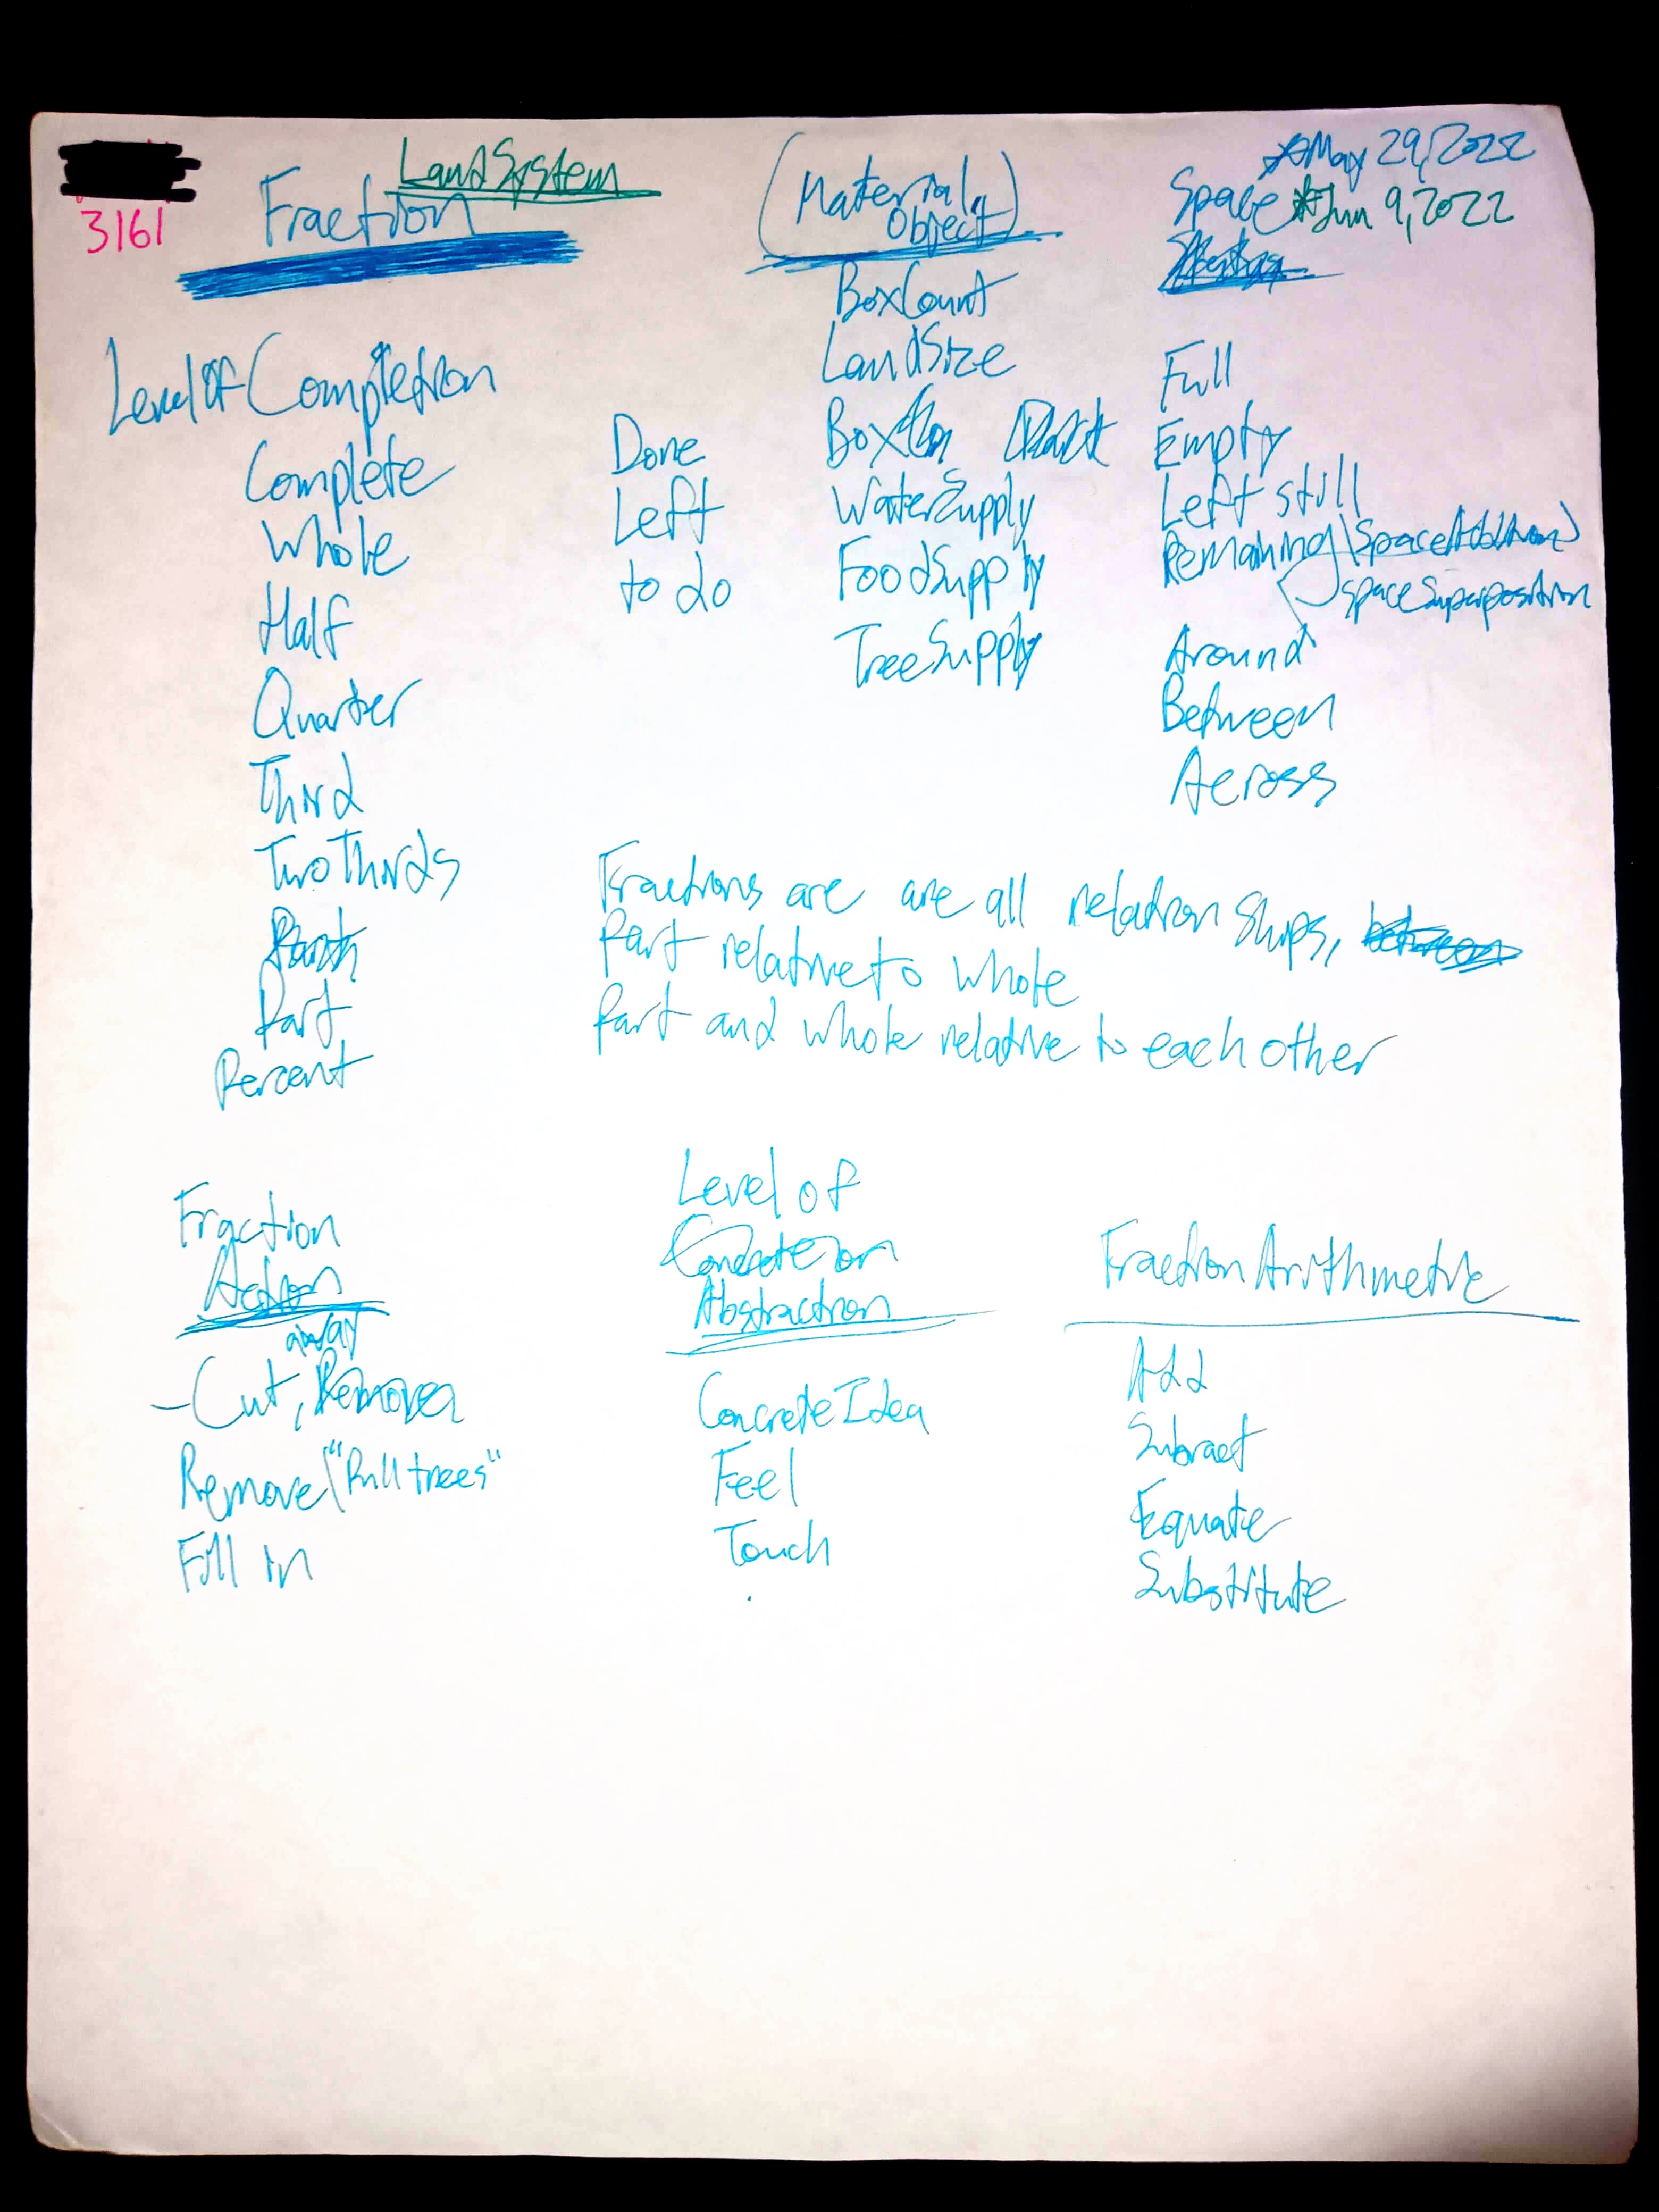 LandSystem
3161
Fraction
(Material,
Object)
May 29, 2022
Space Jun 9, 2022
BoxCount
LandSize
Level Of Completion
Complete
Whole
Half
Quarter
Third
Two Thirds
Part
Percent
Done
Left
to do
Box
WaterSupply
FoodSupply
TreeSupply
Full
Empty
Left still
Remaining (SpaceAddition)
SpaceSuperposition
Around
Between
Across
Fractions are are all relation ships, between
Part relative to whole
Part and whole relative to each other
Fraction
Action
away
-Cut, Remove
Remove ("Pull trees"
Fill in
Level of
Concrete or
Abstraction
Concrete Idea
Feel
Touch
Fraction Arithmetic
Add
Subract
Equate
Substitute